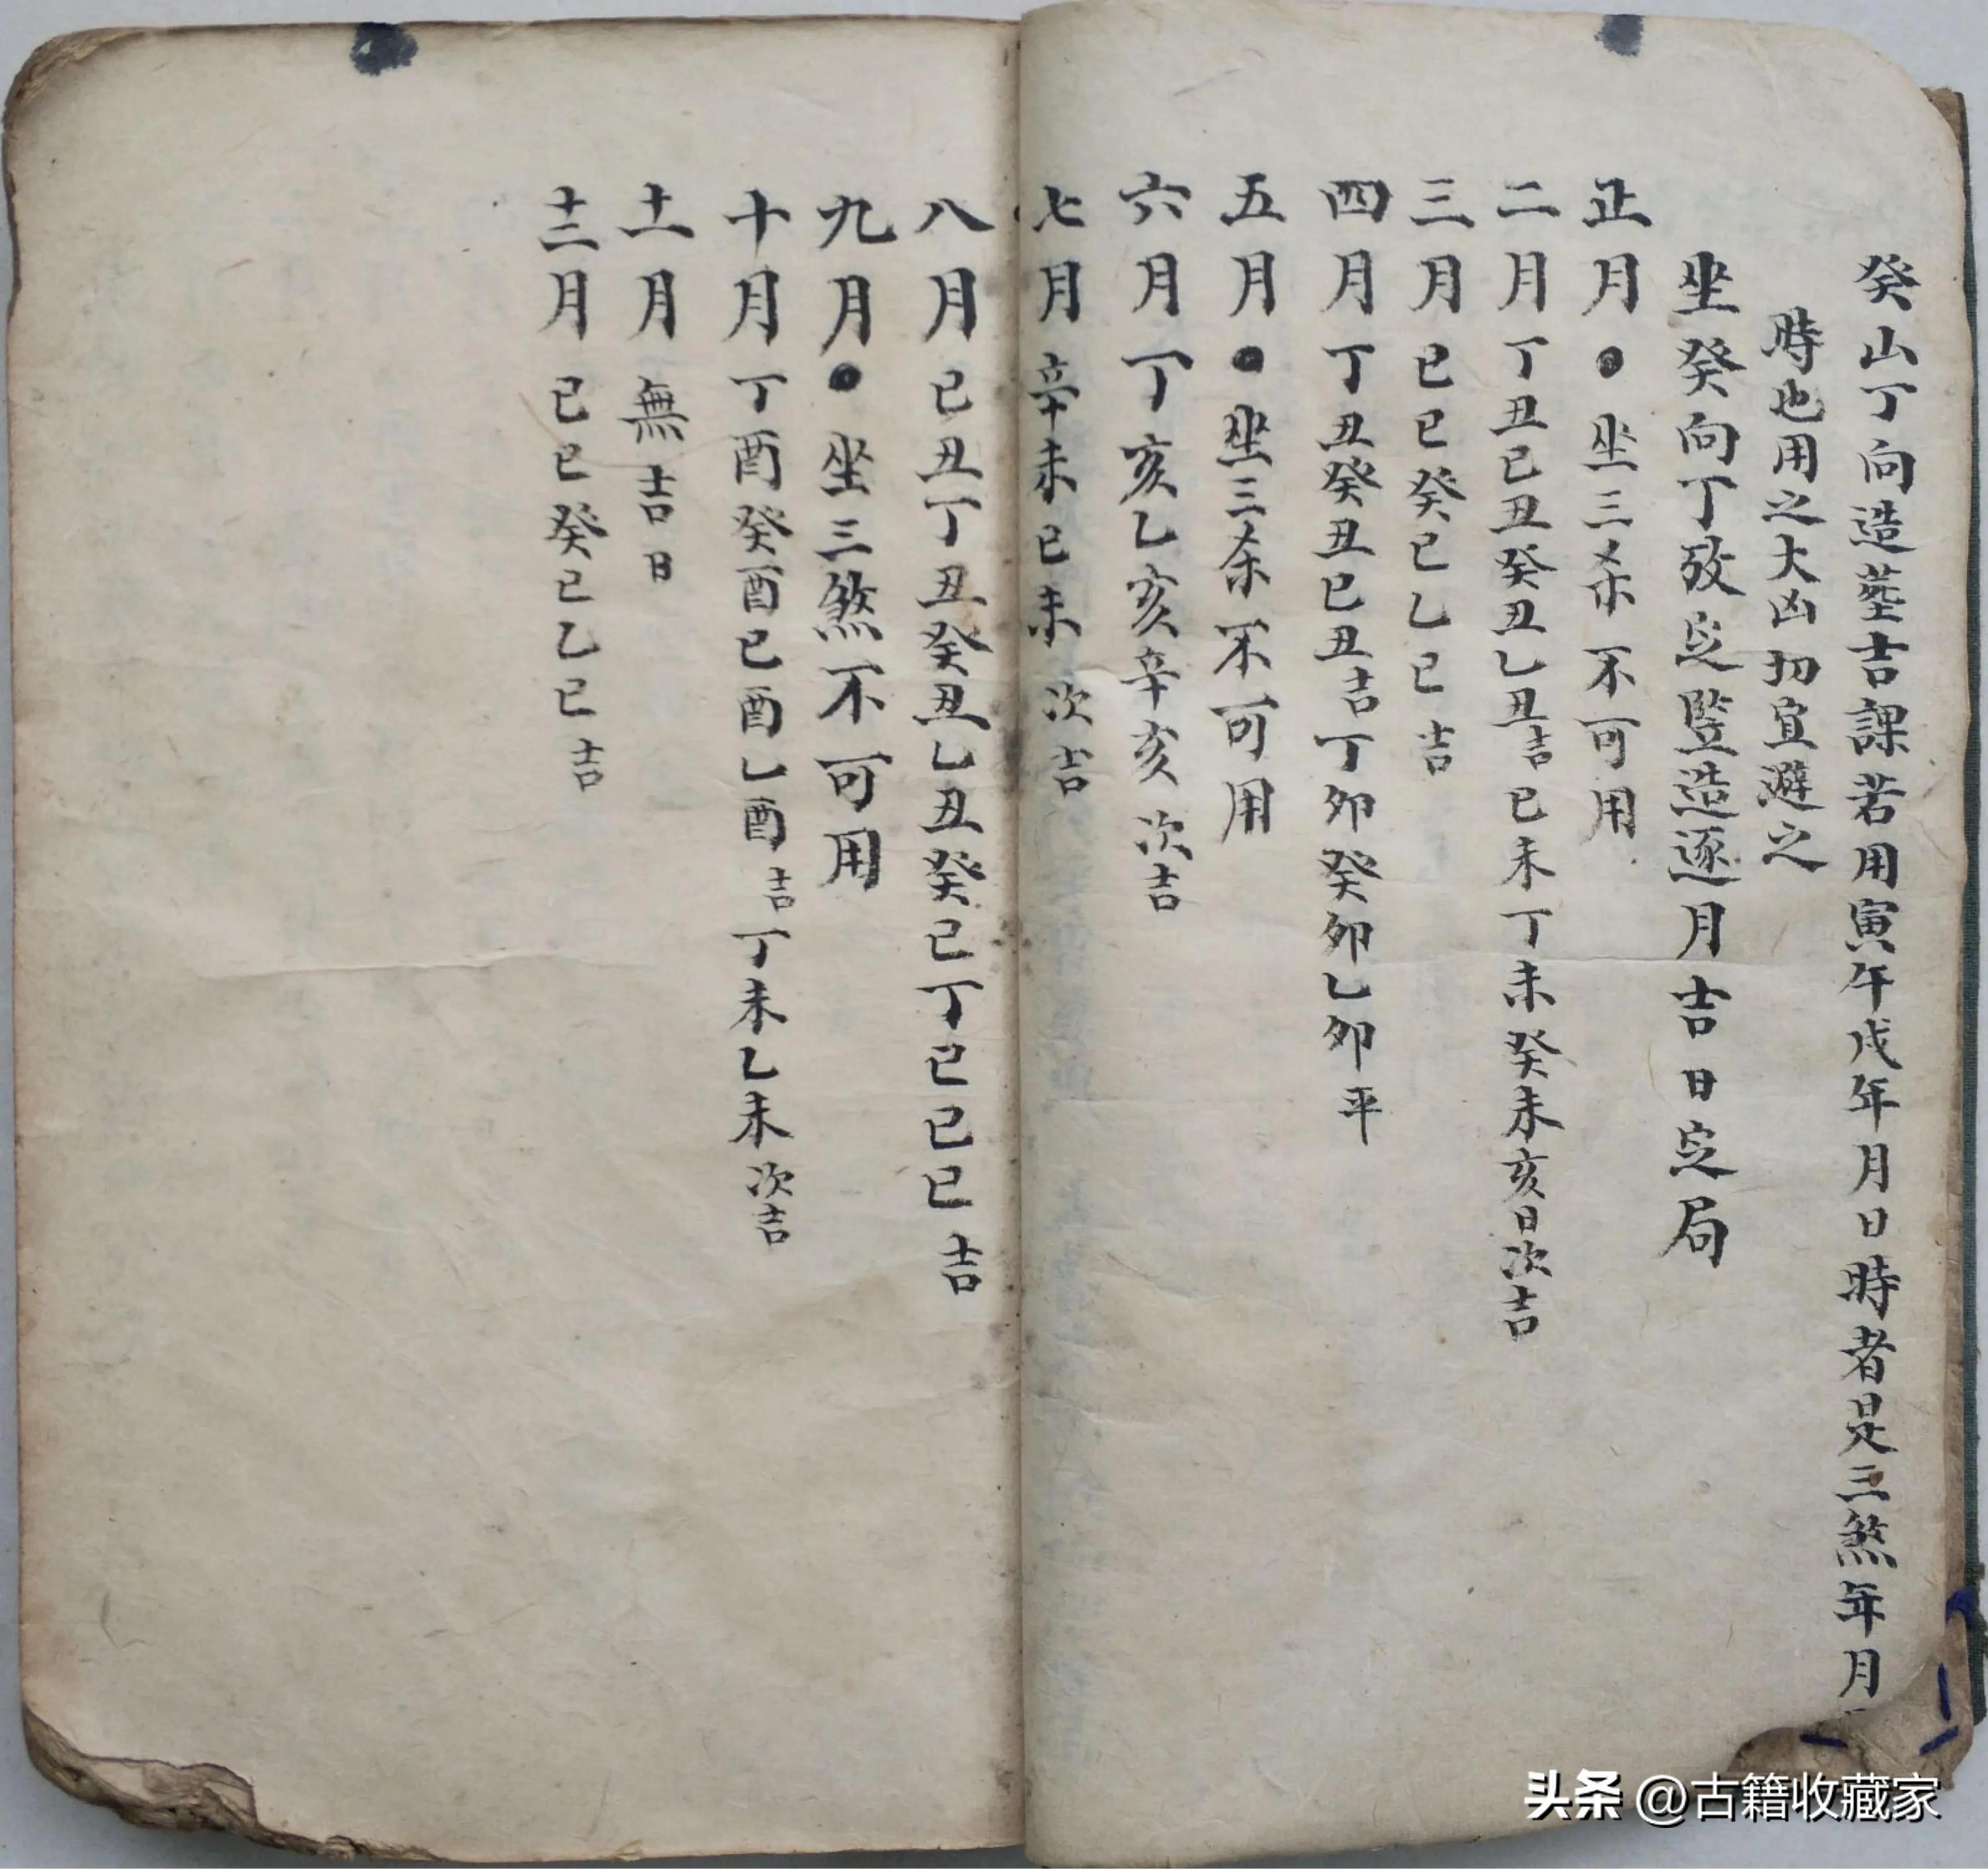 癸山丁向造塟吉課若用寅午戌年月日時者是三煞年月
時也用之大凶切宜避之
坐癸向丁攷定豎造逐月吉日定局
正月●坐三杀不可用
二月丁丑己丑癸丑乙丑吉己未丁未癸未亥日次吉
三月己巳癸巳乙巳吉
四月丁丑癸丑己丑吉丁卯癸卯乙卯平
五月●坐三杀不可用
六月丁亥乙亥辛亥次吉
七月辛未己未次吉
八月己丑丁丑癸丑乙丑癸巳丁巳己巳吉
九月●坐三煞不可用
十月丁酉癸酉己酉乙酉吉丁未乙未次吉
十一月無吉日
十二月己巳癸巳乙巳吉
头条 @古籍收藏家